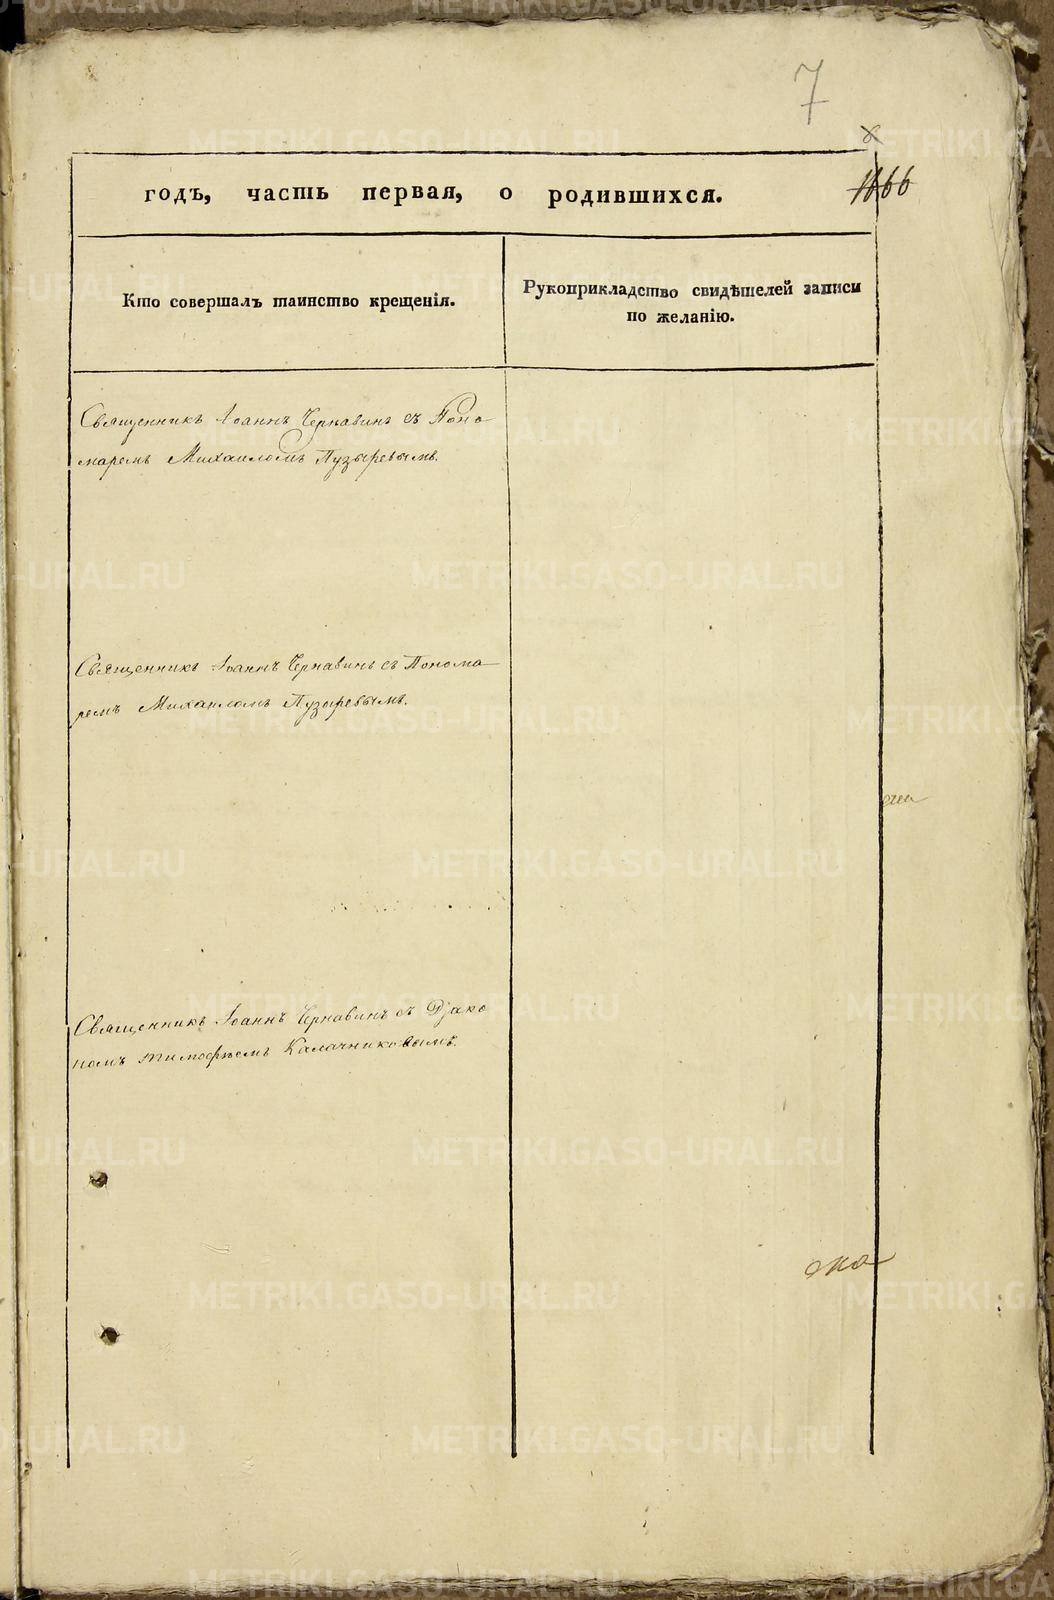 7
годъ, часть первая, о родившихся.
1666
Кто совершалъ таинство крещенія.
Рукоприкладство свидѣтелей записи
по желанію.
Священникъ Іоаннъ Чернавинъ съ Поно
маремъ Михаиломъ Пузыревымъ.
Священникъ Іоаннъ Чернавинъ съ Понома
ремъ Михаиломъ Пузыревымъ.
Священникъ Іоаннъ Чернавинъ съ Діако
номъ Тимофѣемъ Калачниковымъ.
METRIKI.GASO-URAL.RU